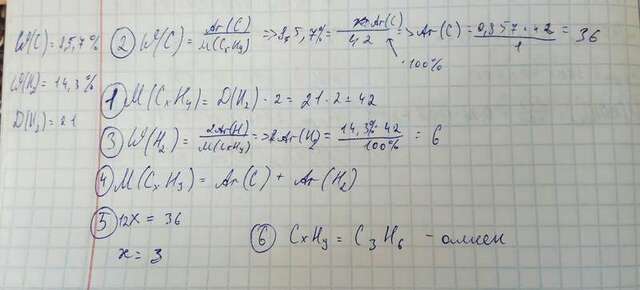 W(C) = 85,7%
W(H₂) = 14,3%
D(H₂) = 21
② W(C) = Ar(C)/M(CxHy) => 85,7% = x·Ar(C)/42 => Ar(C) = 0,857·42/1 = 36
·100%
① M(CxHy) = D(H₂)·2 = 21·2 = 42
③ W(H₂) = 2Ar(H)/M(CxHy) => 2Ar(H₂) = 14,3%·42/100% = 6
④ M(CxHy) = Ar(C) + Ar(H₂)
⑤ 12x = 36
x = 3
⑥ CxHy = C₃H₆ - алкен